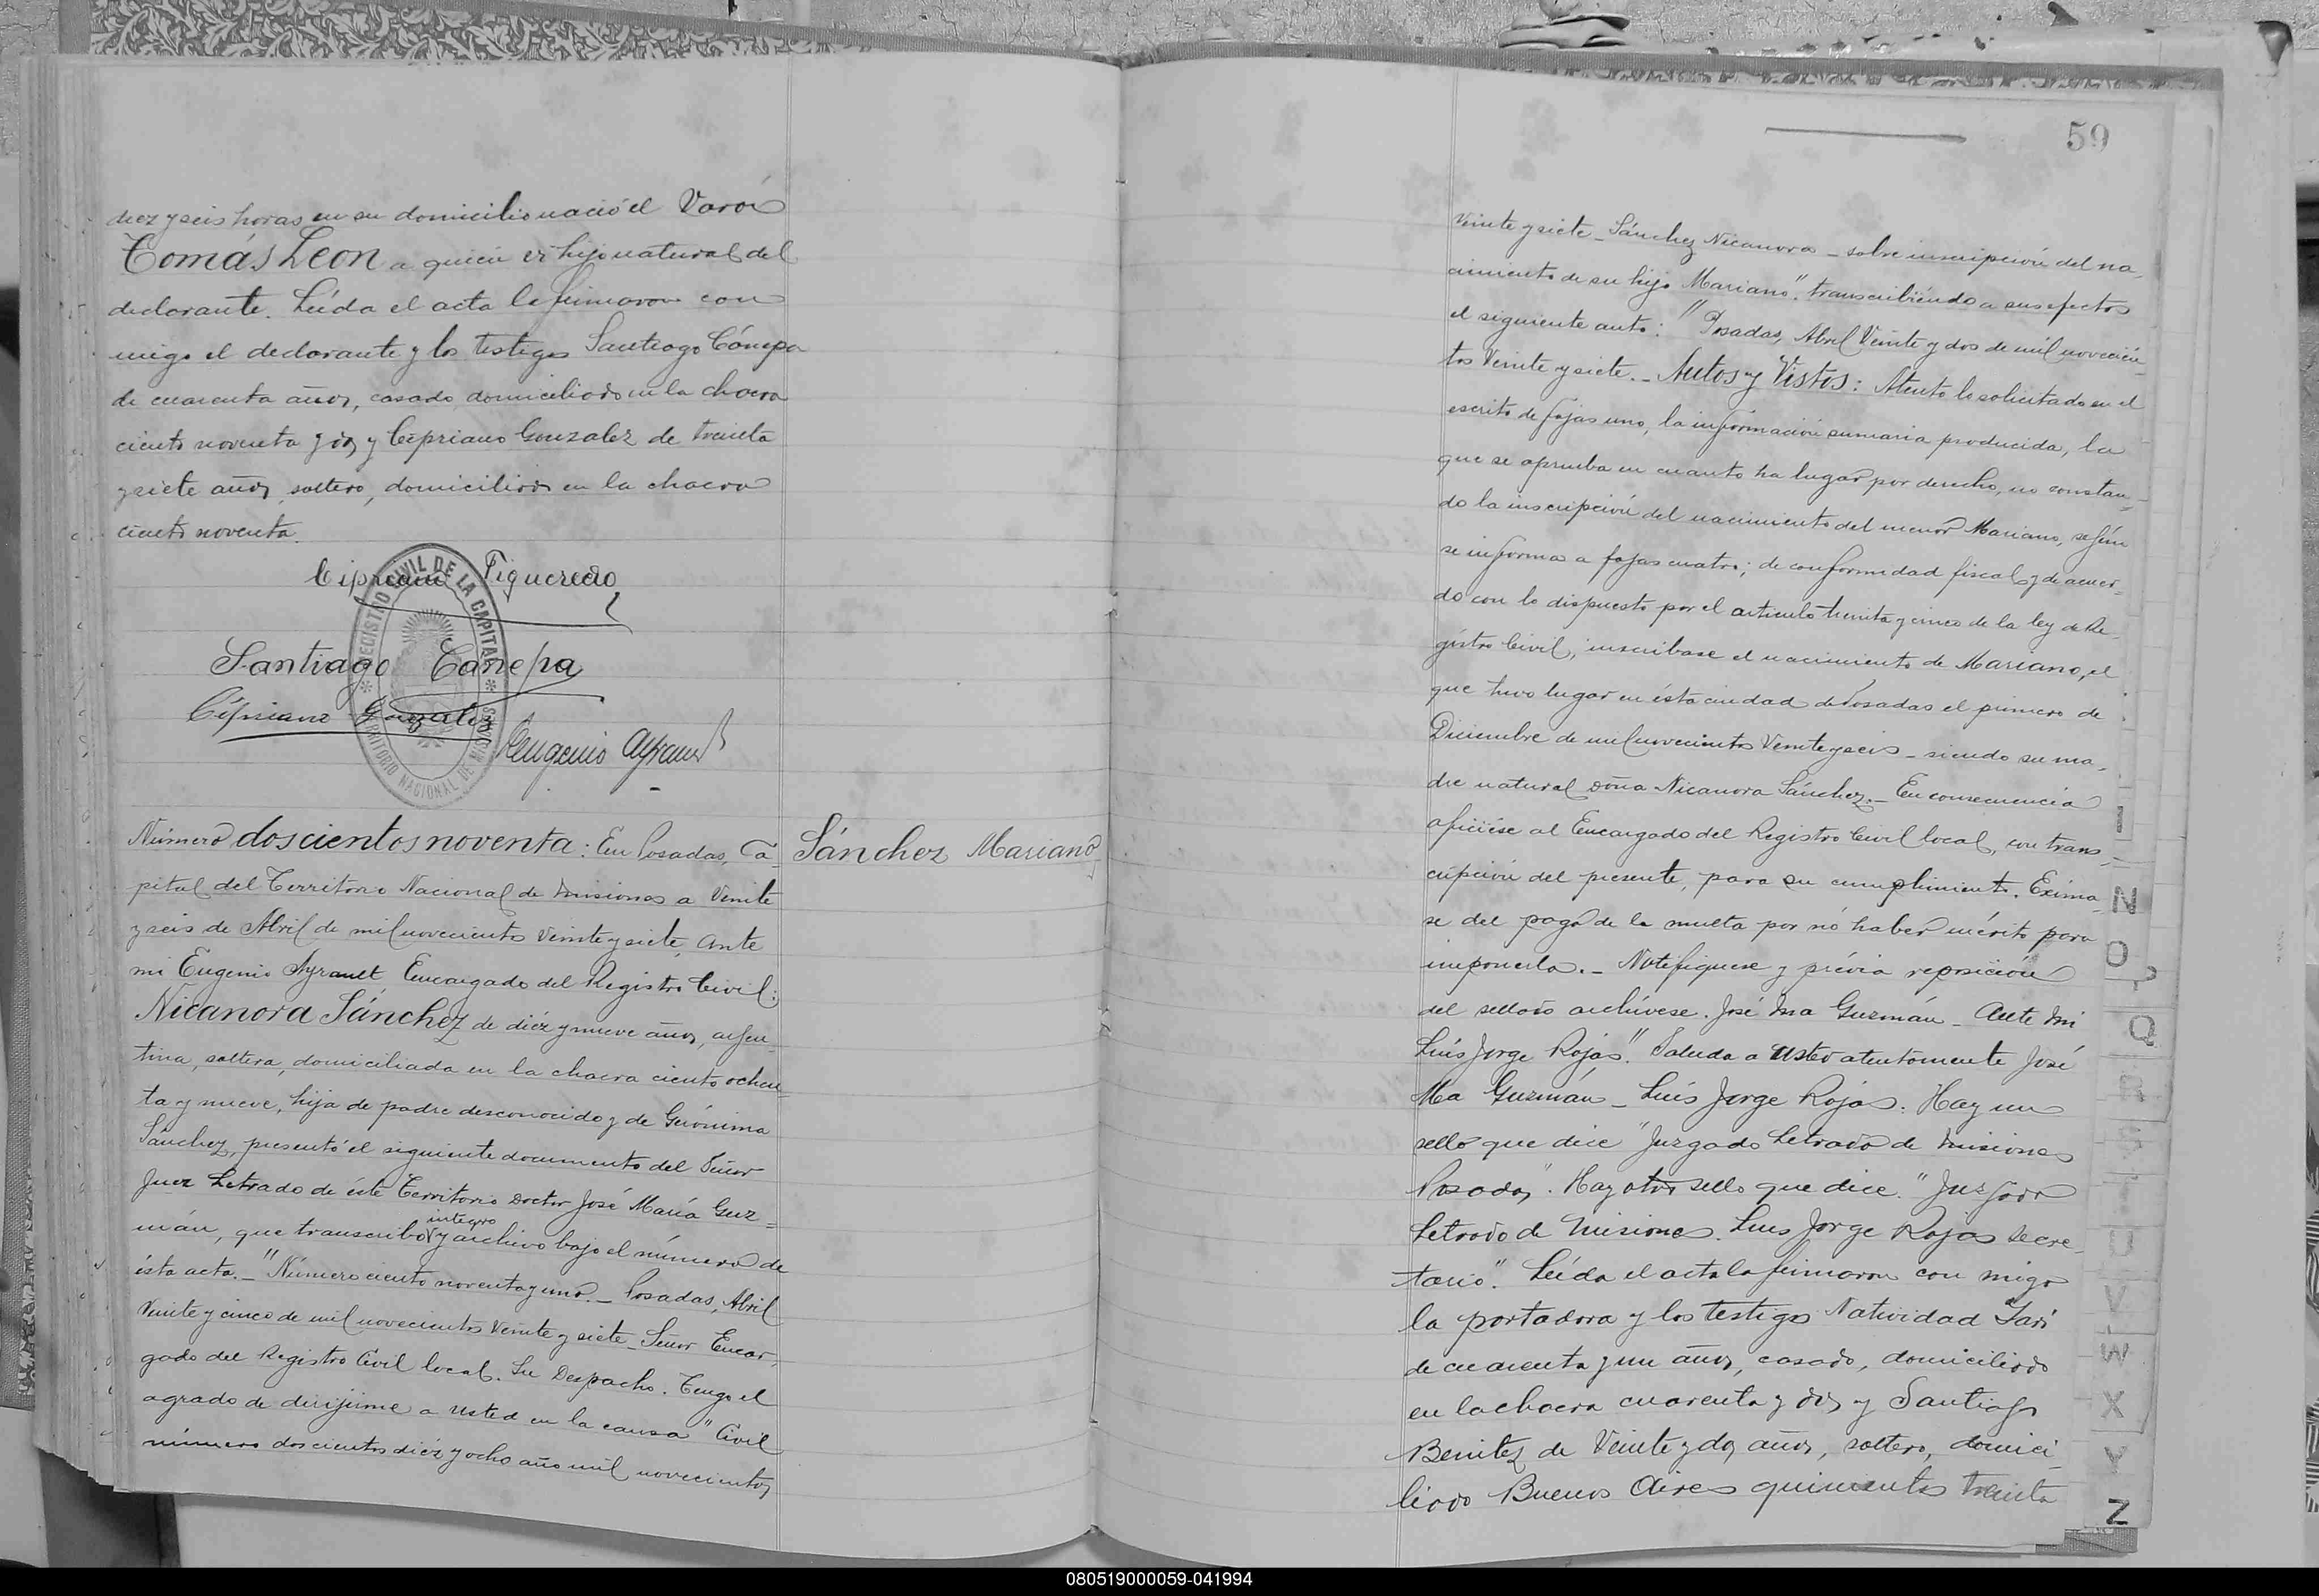 diez y seis horas en su domicilio nació el Varón
Tomás Leon a quien es hijo natural del
declarante. Leída el acta la firmaron con
migo el declarante y los testigos Santiago Cánepa
de cuarenta años, casado, domiciliado en la chacra
ciento noventa y dos y Cipriano Gonzalez de treinta
y siete años, soltero, domiciliado en la chacra
ciento noventa.
Cipriano Figueredo
Santiago Canepa
Cipriano Gonzalez
Eugenio Ayrault
REGISTRO CIVIL DE LA CAPITAL
TERRITORIO NACIONAL DE MISIONES
Número doscientos noventa: En Posadas, Ca-
pital del Territorio Nacional de Misiones a Veinte
y seis de Abril de mil novecientos Veinte y siete, ante
mi Eugenio Ayrault Encargado del Registro Civil:
Nicanora Sánchez de diéz y nueve años, argen-
tina, soltera, domiciliada en la chacra ciento ochen-
ta y nueve, hija de padre desconocido y de Gerónima
Sánchez, presentó el siguiente documento del Señor
Juez Letrado de éste Territorio Doctor José María Guz=
integro
mán, que transcribo y archivo bajo el número de
ésta acta._ "Número ciento noventa y uno._ Posadas, Abril
Veinte y cinco de mil novecientos Veinte y siete_ Señor Encar-
gado del Registro Civil local. Su Despacho. Tengo el
agrado de dirijirme a Usted en la causa "Civil
número doscientos diéz y ocho año mil novecientos
Sánchez Mariano
59
Veinte y siete_ Sánchez Nicanora_ sobre inscripción del na-
cimiento de su hijo Mariano". transcribiéndo a sus efectos
el siguiente auto: "Posadas, Abril Veinte y dos de mil novecien-
tos Veinte y siete._ Autos y Vistos: Atento lo solicitado en el
escrito de fojas uno, la información sumaria producida, la
que se aprueba en cuanto ha lugar por derecho, no constan-
do la inscripción del nacimiento del menor Mariano, según
se informa a fojas cuatro; de conformidad fiscal y de acuer-
do con lo dispuesto por el artículo treinta y cinco de la ley de Re-
gistro Civil, inscribase el nacimiento de Mariano, el
que tuvo lugar en ésta ciudad de Posadas el primero de
Diciembre de mil novecientos Veinte y seis_ siendo su ma-
dre natural doña Nicanora Sánchez._ En consecuencia
ofíciese al Encargado del Registro Civil local, con trans-
cripción del presente, para su cumplimiento. Exima-
se del pago de la multa por nó haber mérito para
imponerla._ Notifíquese y prévia reposición
del sellado archívese. José Ma Guzmán_ Ante Mi
Luis Jorge Rojas". Saluda a Usted atentamente José
Ma Guzmán_ Luis Jorge Rojas. Hay un
sello que dice "Juzgado Letrado de Misiones
Posadas". Hay otro sello que dice. "Juzgado
Letrado de Misiones. Luis Jorge Rojas Secre-
tario". Leída el acta la firmaron con migo
la portadora y los testigos Natividad
de cuarenta y un años, casado, domiciliado
en la chacra cuarenta y dos y Santiago
Benitez de Veinte y dos años, soltero, domici-
liado Buenos Aires quinientos treinta
N
O
P
Q
R
S
T
U
V
W
X
Y
Z
080519000059-041994